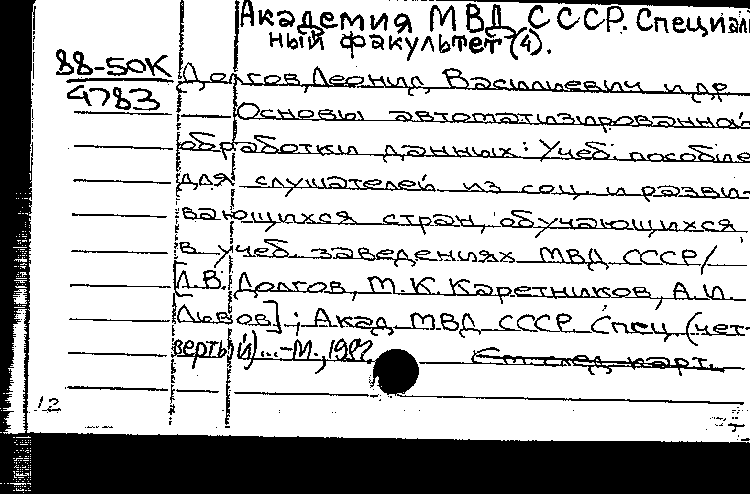 Академия МВД СССР. Специаль
ный факультет (4).
88-50К
4783
Долгов, Леонид Васильевич и др.
Основы автоматизированной
обработки данных: Учеб. пособие
для слушателей из соц. и разви-
вающихся стран, обучающихся
в учеб. заведениях МВД СССР/
[Л.В. Долгов, М.К. Каретников, А.И.
Львов]; Акад. МВД СССР. Спец. (чет-
вертый)...-М., 1987.
См. след. карт.
12